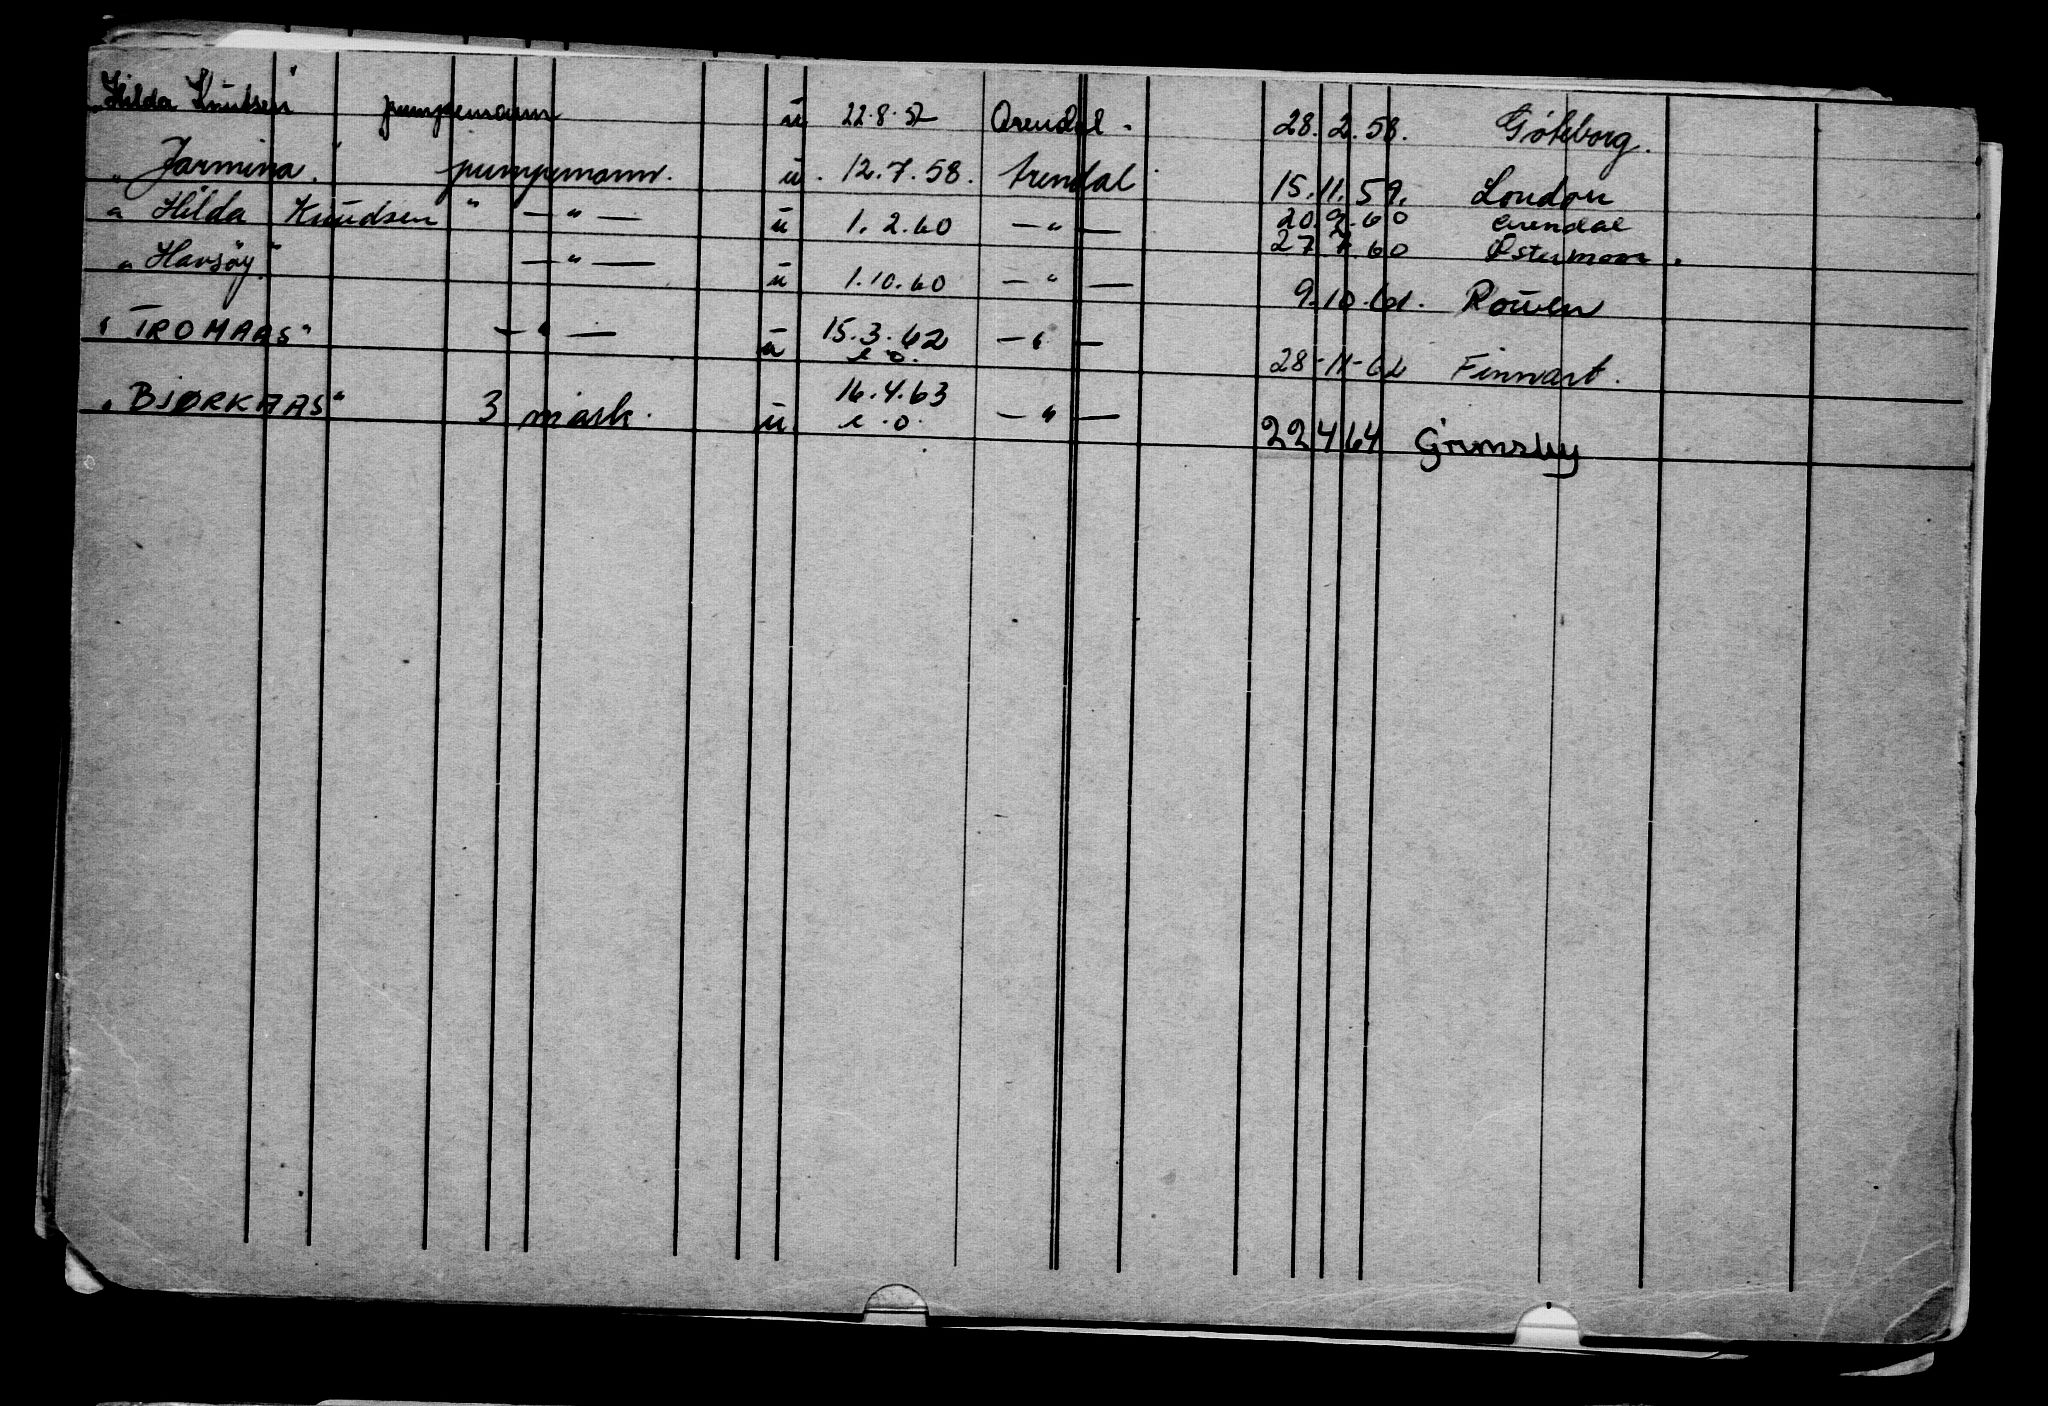 "Hilda Knutsen" pumpemann u 22.8.57 Arendal. 28.2.58. Göteborg.
"Jarmina." pumpemann. u. 12.7.58. Arendal 15.11.59. London
"Hilda Knudsen" — " — u 1.2.60 — " — 20 60 Arendal
27 7 60 Østermoor.
"Havsöy" — " — u 1.10.60 — " — 9.10.61. Rouen
"TROMAAS" — " — u 15.3.62 — " — 28-11-62 Finnart.
e.o.
"BJØRKAAS" 3 mask. u 16.4.63 — " — 22 4 64 Grimsby
e.o.